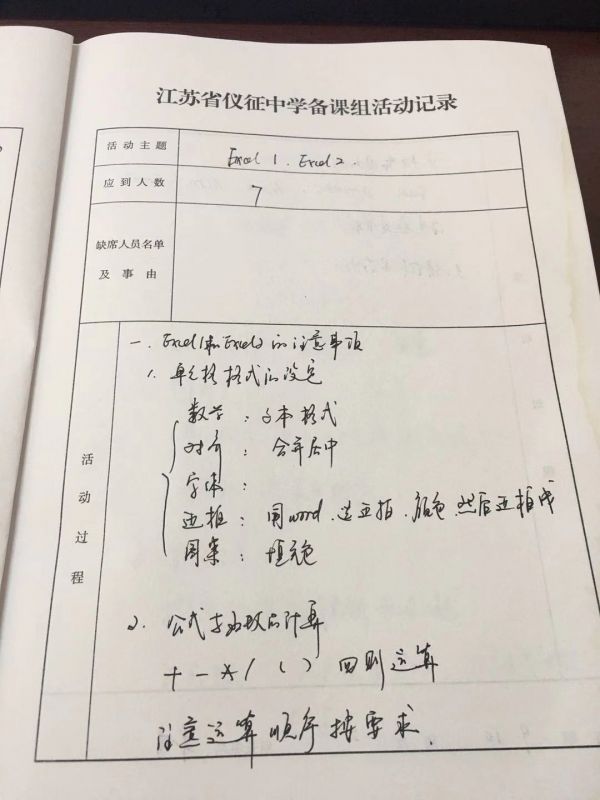 江苏省仪征中学备课组活动记录
活动主题
Excel 1、Excel 2.
应到人数
7
缺席人员名单
及事由
活动过程
一、Excel1和Excel2的注意事项
1. 单元格格式的设定
数字：文本格式
对齐：合并居中
字体：
边框：同word、选边框、颜色、然后边框线
图案：填充色
2. 公式与函数的计算
+ - * / ( ) 四则运算
注意运算顺序按要求.